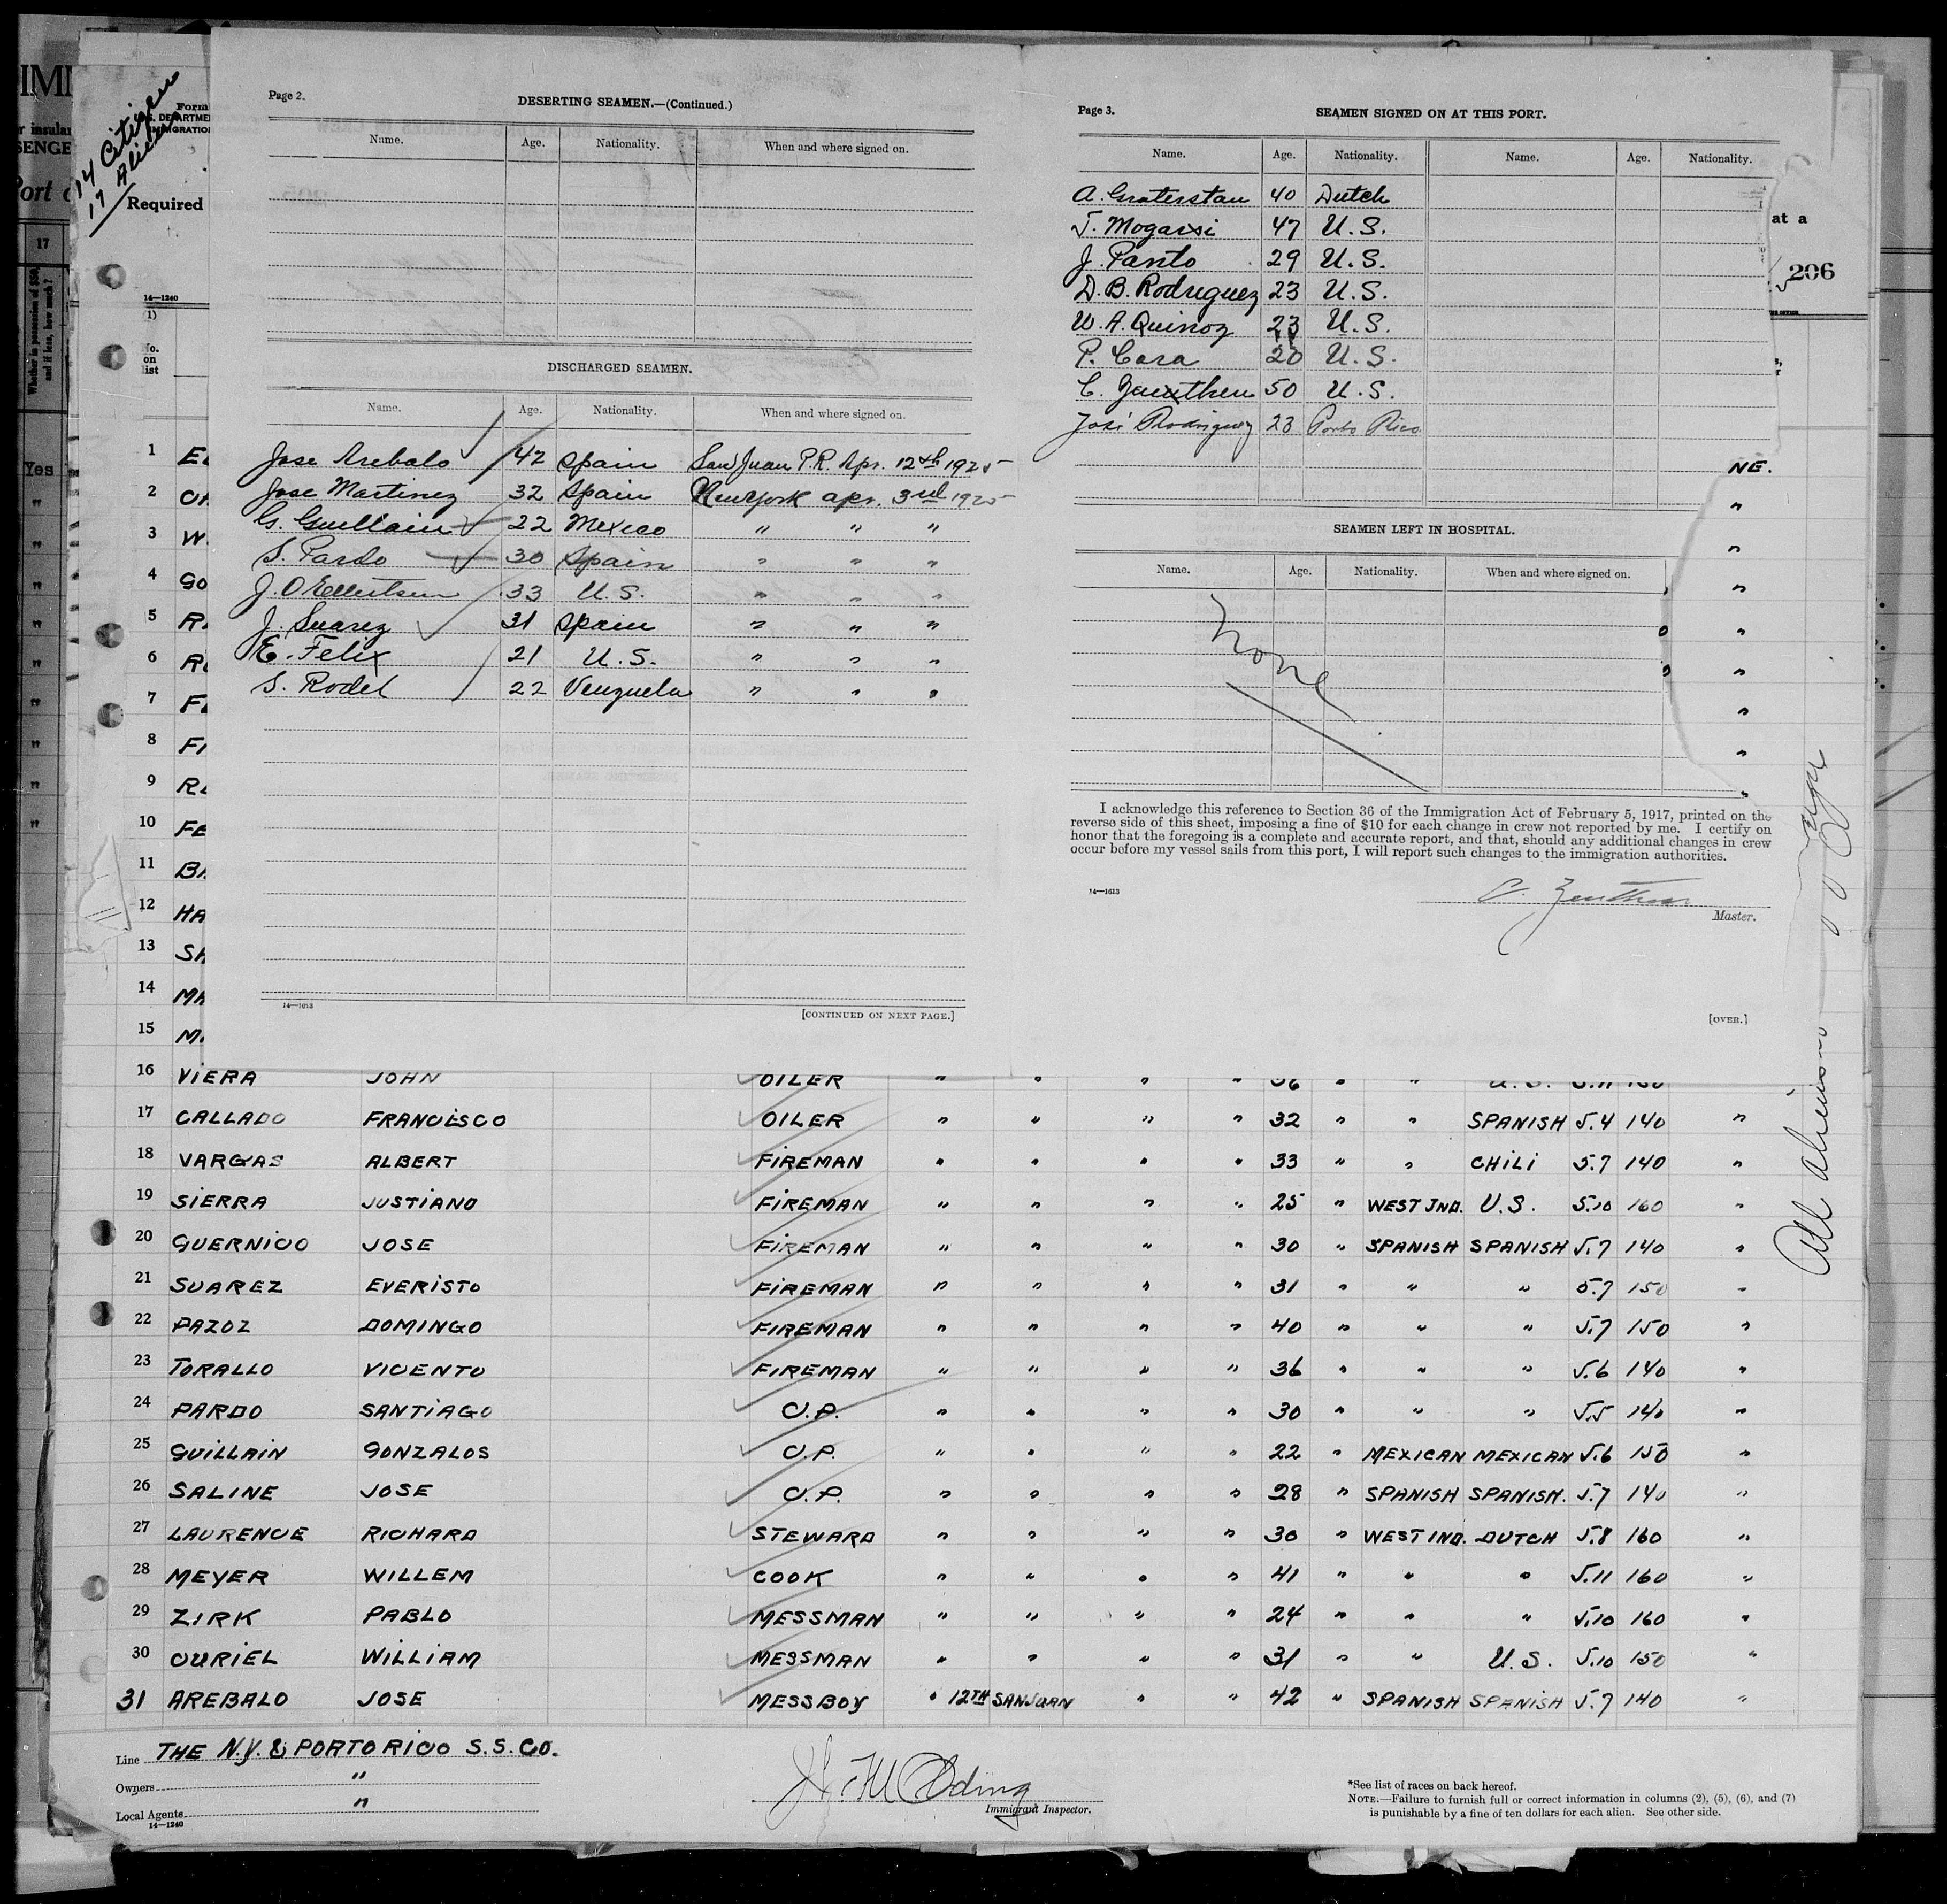 14 Citizens
17 Aliens
Form
S. DEPARTME
IMMIGRATION
Required
14—1240
Page 2.
DESERTING SEAMEN.—(Continued.)
Name. Age. Nationality. When and where signed on.
DISCHARGED SEAMEN.
Name. Age. Nationality. When and where signed on.
Jose Arebalo 42 Spain San Juan P.R. Apr. 12th 1925
Jose Martinez 32 Spain New York apr. 3rd 1925
G. Guillain 22 Mexico " " "
S. Pardo 30 Spain " " "
J. O Ellertsen 33 U.S. " " "
J. Suarez 31 Spain " " "
E. Felix 21 U.S. " " "
S. Rodel 22 Venzuela " " "
14—1613
[CONTINUED ON NEXT PAGE.]
Page 3.
SEAMEN SIGNED ON AT THIS PORT.
Name. Age. Nationality. Name. Age. Nationality.
A. Graterstan 40 Dutch
J. Mogarsi 47 U.S.
J. Panto 29 U.S.
D. B. Rodriguez 23 U.S.
W. A. Quinoz 23 U.S.
P. Cara 20 U.S.
C. Zeuthen 50 U.S.
José Rodriguez 23 Porto Rico
SEAMEN LEFT IN HOSPITAL.
Name. Age. Nationality. When and where signed on.
None
I acknowledge this reference to Section 36 of the Immigration Act of February 5, 1917, printed on the
reverse side of this sheet, imposing a fine of $10 for each change in crew not reported by me. I certify on
honor that the foregoing is a complete and accurate report, and that, should any additional changes in crew
occur before my vessel sails from this port, I will report such changes to the immigration authorities.
C. Zeuthen
Master.
14—1613
[OVER.]
at a
206
NE.
17
Whether in possession of $50, and if less, how much?
Yes
No.
on
list
1
2
3
4
5
6
7
8
9
10
11
12
13
14
15
16 VIERA JOHN OILER " " " " 36 " " U.S. 5.11
17 CALLADO FRANCISCO OILER " " " " 32 " " SPANISH 5.4 140 "
18 VARGAS ALBERT FIREMAN " " " " 33 " " CHILI 5.7 140 "
19 SIERRA JUSTIANO FIREMAN " " " " 25 " WEST IND. U.S. 5.10 160 "
20 GUERNICO JOSE FIREMAN " " " " 30 " SPANISH SPANISH 5.7 140 "
21 SUAREZ EVERISTO FIREMAN " " " " 31 " " " 5.7 150 "
22 PAZOZ DOMINGO FIREMAN " " " " 40 " " " 5.7 150 "
23 TORALLO VICENTO FIREMAN " " " " 36 " " " 5.6 140 "
24 PARDO SANTIAGO C.P. " " " " 30 " " " 5.5 140 "
25 GUILLAIN GONZALOS C.P. " " " " 22 " MEXICAN MEXICAN 5.6 150 "
26 SALINE JOSE C.P. " " " " 28 " SPANISH SPANISH. 5.7 140 "
27 LAURENCE RICHARD STEWARD " " " " 30 " WEST IND. DUTCH 5.8 160 "
28 MEYER WILLEM COOK " " " " 41 " " " 5.11 160 "
29 ZIRK PABLO MESSMAN " " " " 24 " " " 5.10 160 "
30 CURIEL WILLIAM MESSMAN " " " " 31 " " U.S. 5.10 150 "
31 AREBALO JOSE MESSBOY " 12TH SANJUAN " " 42 " SPANISH SPANISH 5.7 140 "
Line THE N.Y. & PORTO RICO S.S. CO.
Owners "
Local Agents "
14—1240
Immigrant Inspector.
*See list of races on back hereof.
NOTE.—Failure to furnish full or correct information in columns (2), (5), (6), and (7)
is punishable by a fine of ten dollars for each alien. See other side.